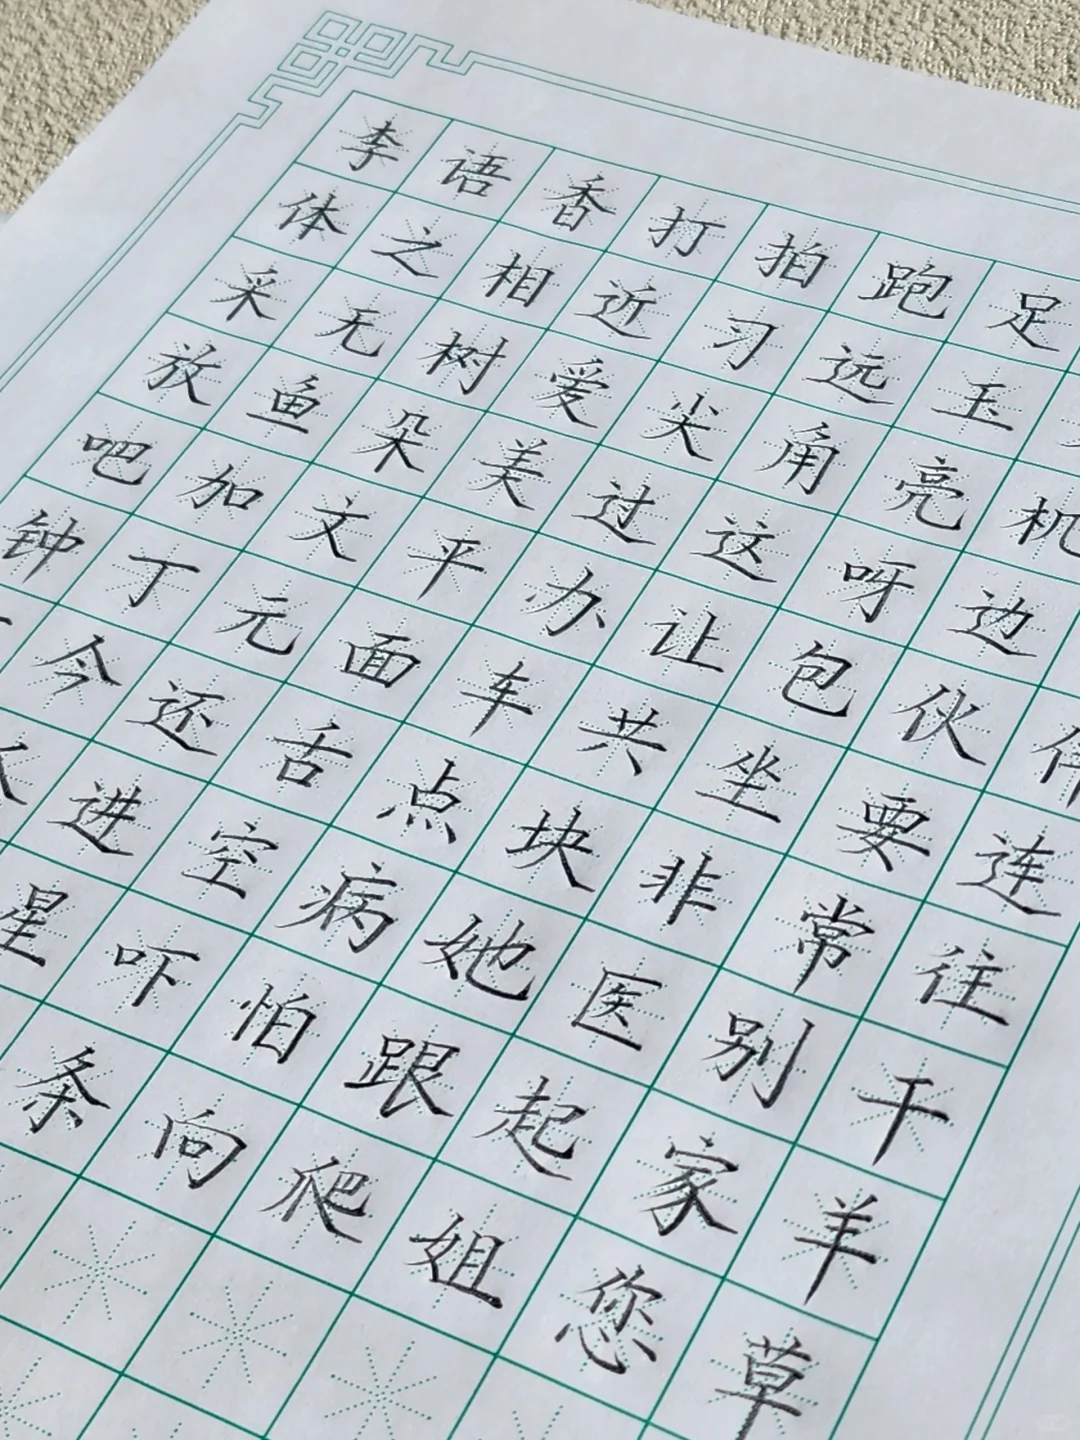 李语香打拍跑足
体之相近习远玉
采无树爱尖角亮机
放鱼朵美过这呀边
吧加文平办让包伙
钟丁元面车共坐要连
今还舌点块非常往
进空病她医别干
星吓怕跟起家羊
条向爬姐您草